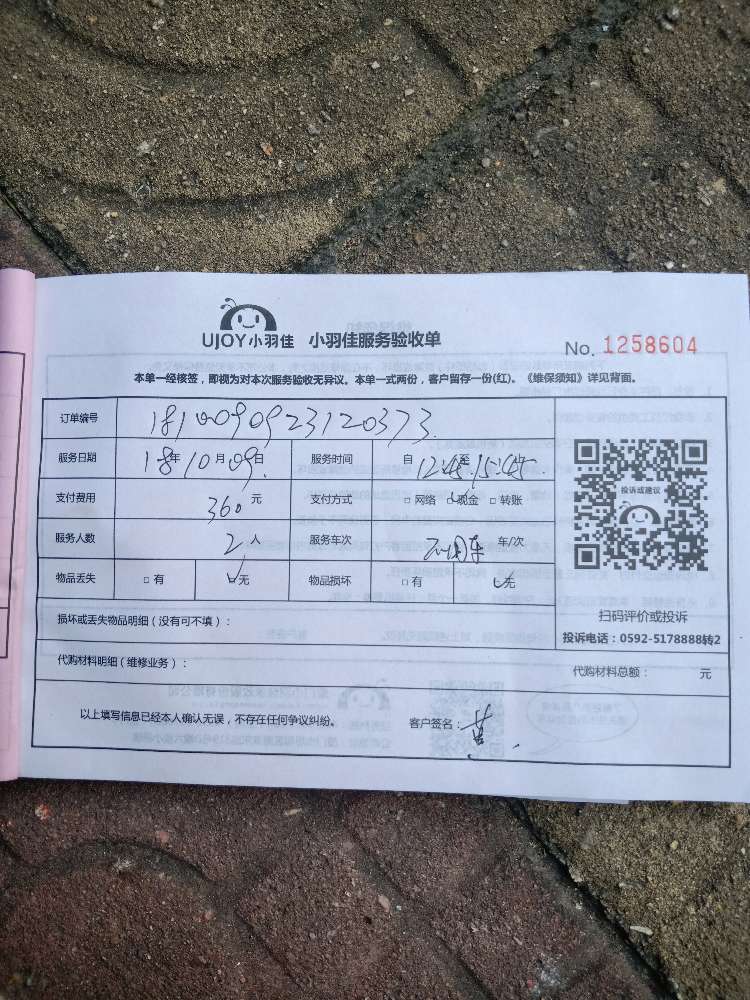 UJOY小羽佳 小羽佳服务验收单
No. 1258604
本单一经核签，即视为对本次服务验收无异议。本单一式两份，客户留存一份(红)。《维保须知》详见背面。
订单编号 1810090923120373
服务日期 18年10月09日 服务时间 自12:45至15:45
支付费用 360元 支付方式 □ 网络 □ 现金 □ 转账
服务人数 2人 服务车次 不用车 车/次
物品丢失 □ 有 □ 无 物品损坏 □ 有 □ 无
投诉或建议
扫码评价或投诉
投诉电话：0592-5178888转2
损坏或丢失物品明细（没有可不填）：
代购材料明细（维修业务）： 代购材料总额： 元
以上填写信息已经本人确认无误，不存在任何争议纠纷。 客户签名：黄